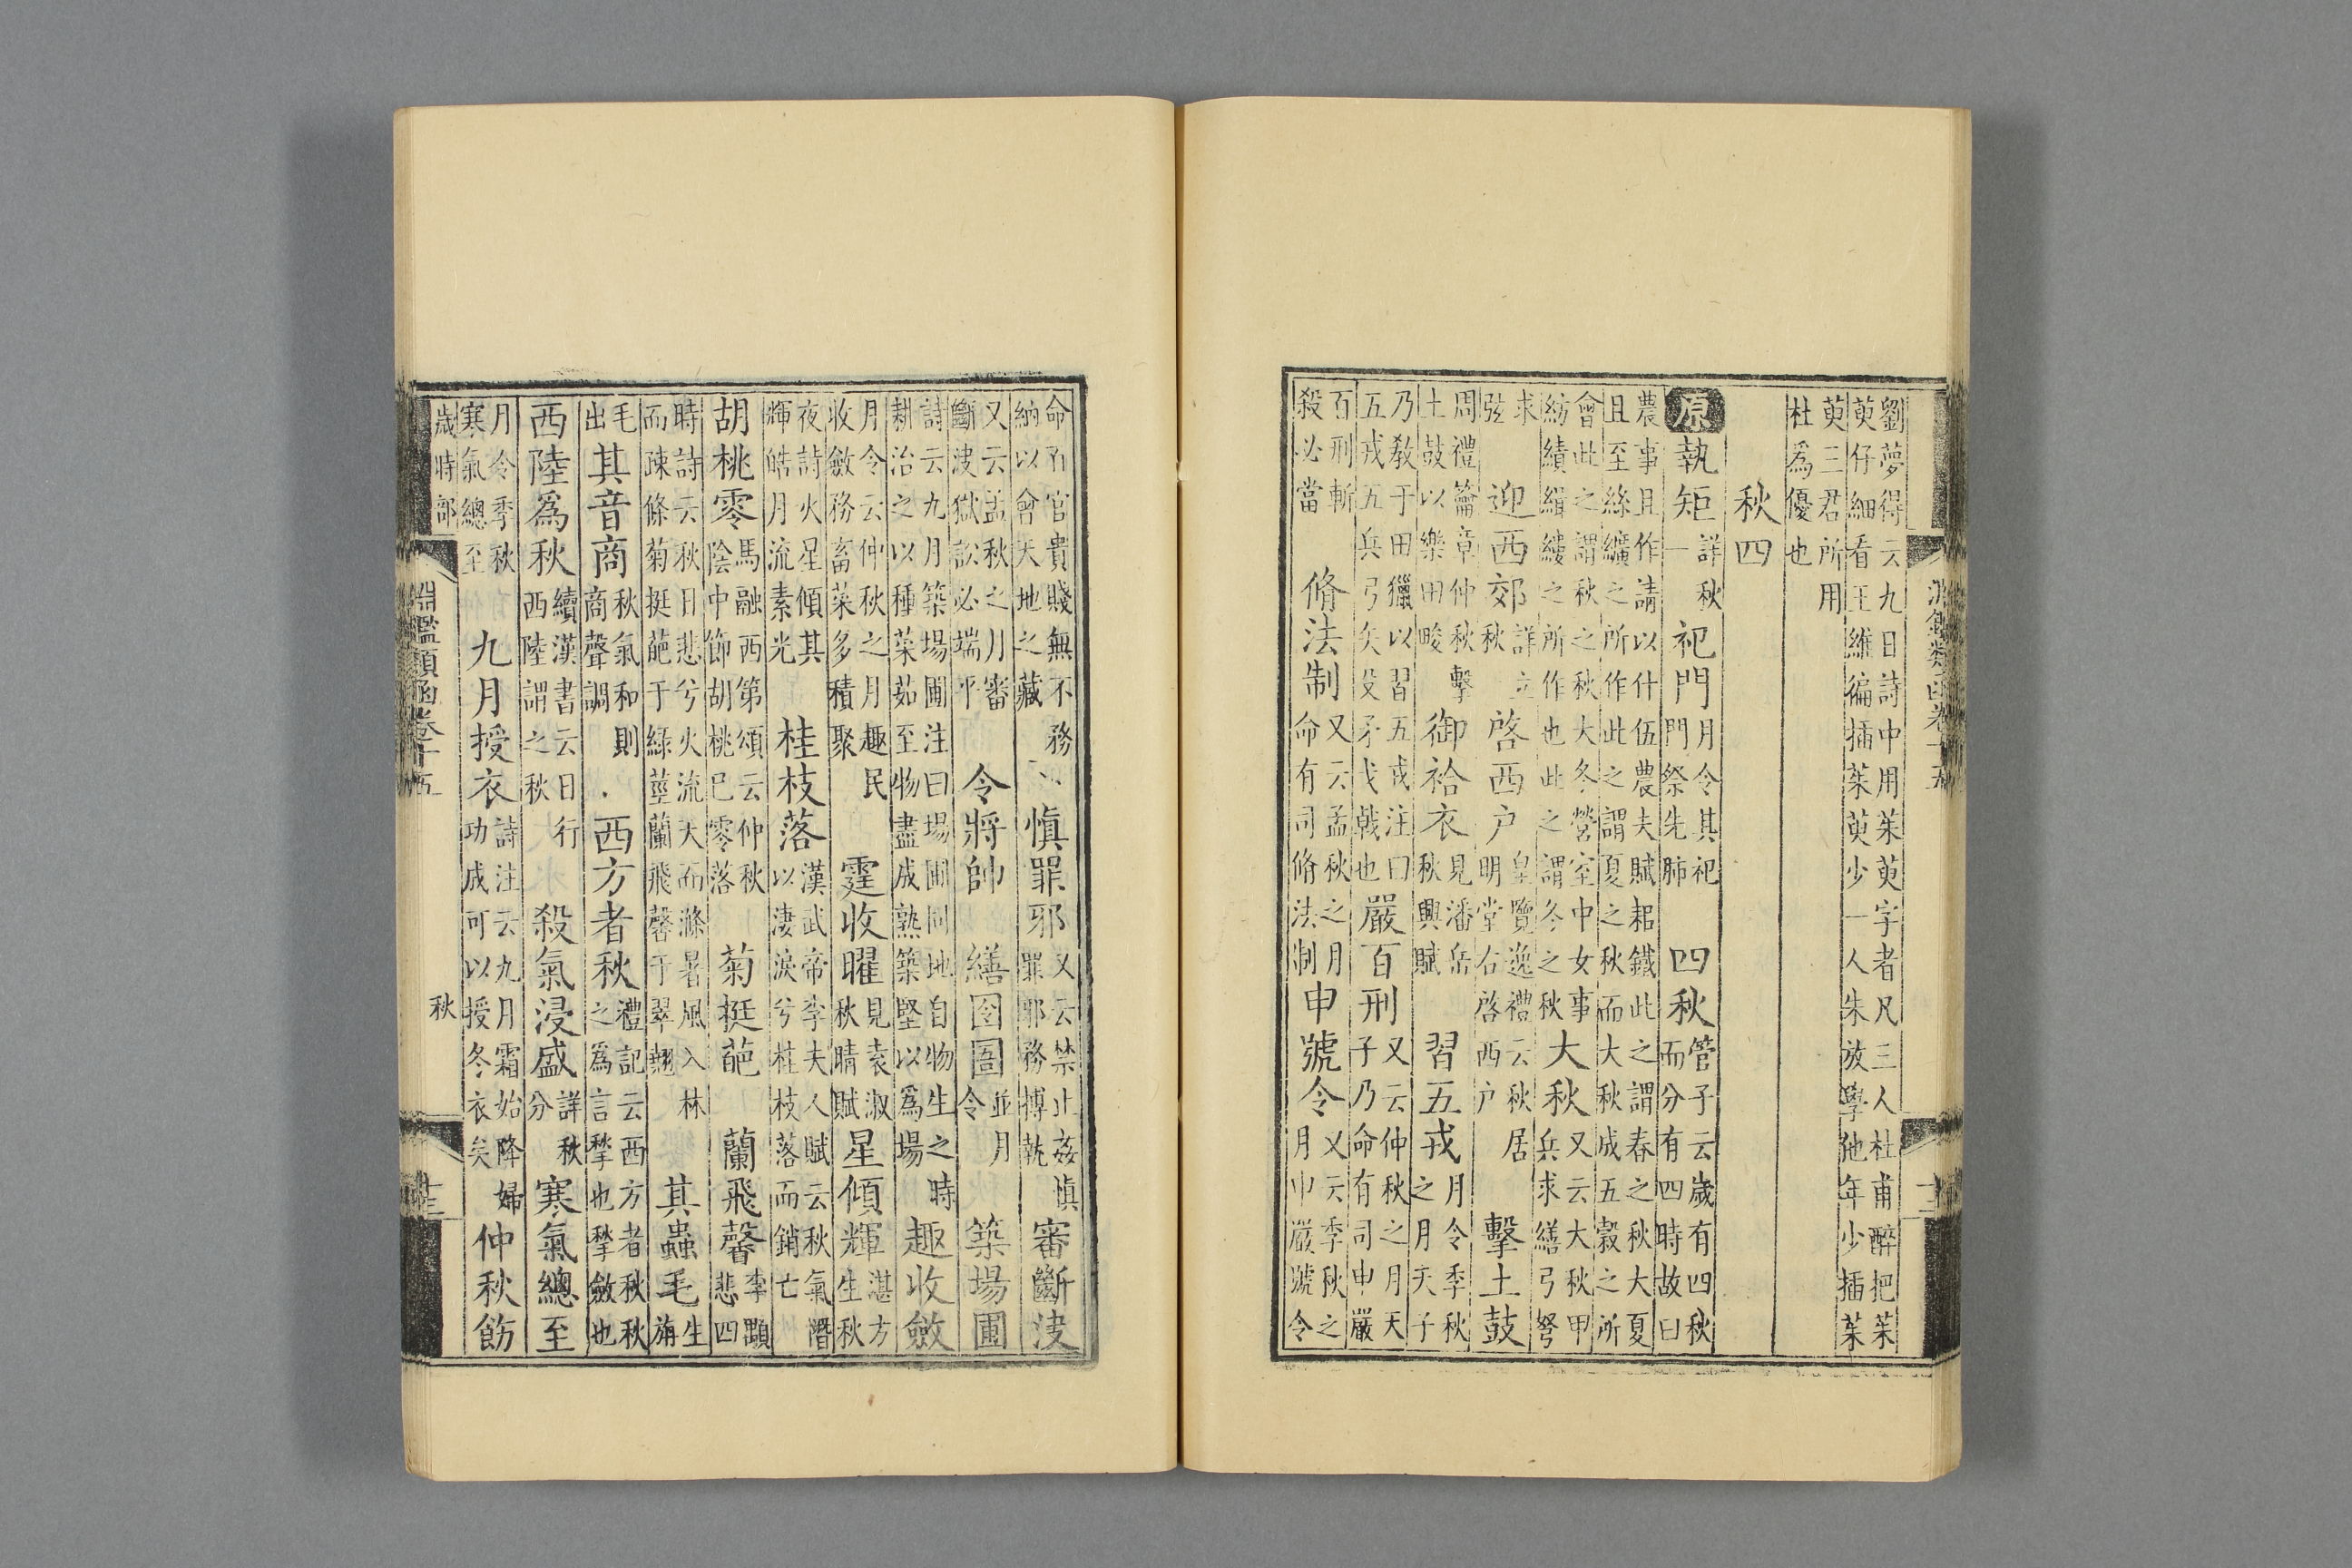 淵鑑類函卷十五
劉夢得云九日詩中用茱萸字者凡三人杜甫醉把茱
萸仔細看王維徧插茱萸少一人朱放學他年少插茱
萸三君所用
杜爲優也
秋四
原執矩詳秋一祀門月令其祀門祭先肺四秋管子云歲有四秋而分有四時故曰
農事且作請以什伍農夫賦耜鐵此之謂春之秋大夏
且至絲纊之所作此之謂夏之秋而大秋成五穀之所
會此之謂秋之秋大冬營室中女事紡績緝縷之所作也此之謂冬之秋大秋又云大秋甲兵求繕弓弩
求弦迎西郊詳立秋啓西户皇覽逸禮云秋居明堂右啓西户擊土鼓
周禮籥章仲秋擊土鼓以樂田畯御袷衣見潘岳秋興賦習五戎月令季秋之月天子
乃敎于田獵以習五戎注曰五戎五兵弓矢殳矛戈戟也嚴百刑又云仲秋之月天子乃命有司申嚴
百刑斬殺必當脩法制又云孟秋之月命有司脩法制申號令又云季秋之月申嚴號令
命百官貴賤無不務納以會天地之藏愼罪邪又云禁止姦愼罪邪務搏執審斷決
又云孟秋之月審斷決獄訟必端平令將帥繕囹圄並月令築場圃
詩云九月築場圃注曰場圃同地自物生之時耕治之以種菜茹至物盡成熟築堅以爲場趣收斂
月令云仲秋之月趣民收斂務畜菜多積聚霆收曜見袁淑秋晴賦星傾輝湛方生秋
夜詩火星傾其輝皓月流素光桂枝落漢武帝李夫人賦云秋氣潛以淒淚兮桂枝落而銷亡
胡桃零馬融西第頌云仲秋陰中節胡桃已零落菊挺葩蘭飛馨李顒悲四
時詩云秋日悲兮火流天而滌暑風入林而疎條菊挺葩于綠莖蘭飛馨于翠翹其蟲毛生旃
毛出其音商秋氣和則商聲調西方者秋禮記云西方者秋秋之爲言揫也揫斂也
西陸爲秋續漢書云日行西陸謂之秋殺氣浸盛詳秋分寒氣總至
月令季秋寒氣總至九月授衣詩注云九月霜始降婦功成可以授冬衣矣仲秋飭
歲時部 淵鑑類函卷十五 秋 十三